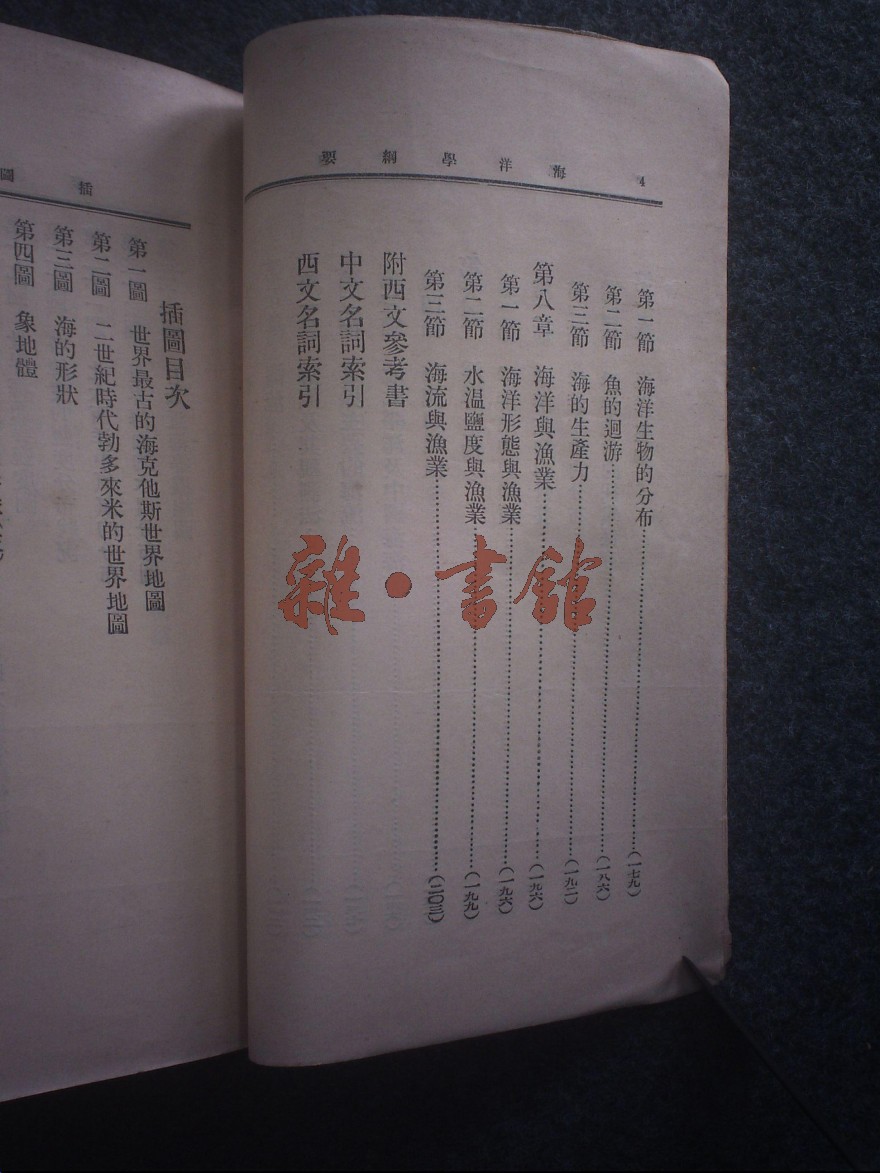 4 海洋學綱要
第一節 海洋生物的分布……(一七九)
第二節 魚的迴游……(一八六)
第三節 海的生產力……(一九二)
第八章 海洋與漁業……(一九六)
第一節 海洋形態與漁業……(一九六)
第二節 水温鹽度與漁業……(一九九)
第三節 海流與漁業……(二〇三)
附西文參考書
中文名詞索引
西文名詞索引
雜·書館
插圖
插圖目次
第一圖 世界最古的海克他斯世界地圖
第二圖 二世紀時代勃多來米的世界地圖
第三圖 海的形狀
第四圖 象地體